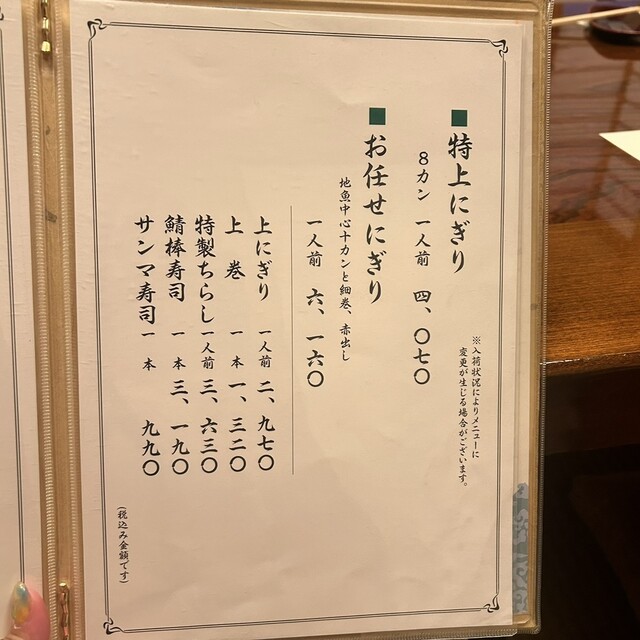 ■特上にぎり
8カン 一人前 四、〇七〇
※入荷状況によりメニューに
変更が生じる場合がございます。
■お任せにぎり
地魚中心十カンと細巻、赤出し
一人前 六、一六〇
上にぎり 一人前 二、九七〇
上巻 一本 一、三二〇
特製ちらし 一人前 三、六三〇
鯖棒寿司 一本 三、一九〇
サンマ寿司 一本 九九〇
(税込み金額です)